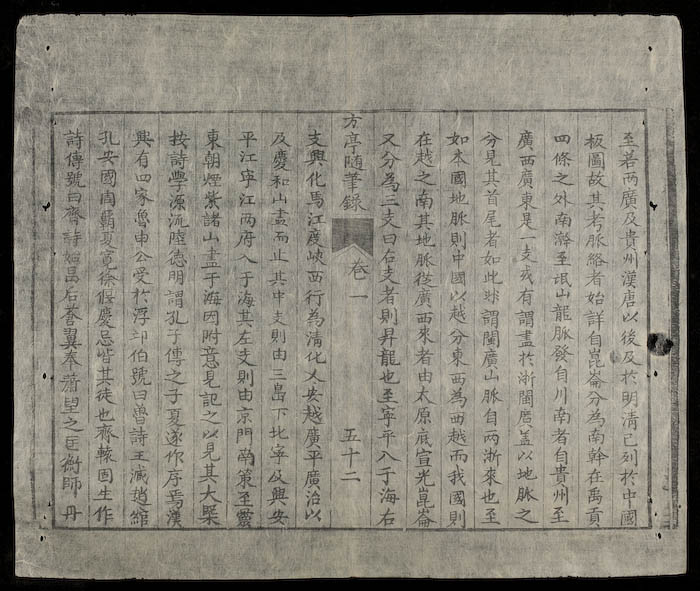 至若两廣及貴州漢唐以後及於明清已列於中國
板圖故其考脈絡者始詳自崑崙分為南幹在禹貢
四條之外南濱至岷山龍脈發自川南者自貴州至
廣西廣東是一支或有謂盡於浙閩盖以地脈之
分見其首尾者如此或謂閩廣山脈自两浙來也至
如本國地脈則中國以越分東西為西越而我國則
在越之南其地脈從廣西來者由太原底宣光崑崙
又分為三支曰右支者則昇龍也至寧平入于海右
方亭隨筆錄 卷一 五十二
支興化馬江度峽西行為清化乂安越廣平廣治以
及慶和山盡而止其中支則由三島下北寧及興安
平江寧江两府入于海其左支則由京門南策至靈
東朝煙紫諸山盡于海因附意見記之以見其大槩
按詩學源流陸德明謂孔子傳之子夏遂作序焉漢
興有四家魯申公受於浮邱伯號曰魯詩王滅趙綰
孔安國周霸夏寬徐偃慶忌皆其徒也齊轅固生作
詩傳號曰齊詩 昌后蒼翼奉蕭望之匡衡師丹